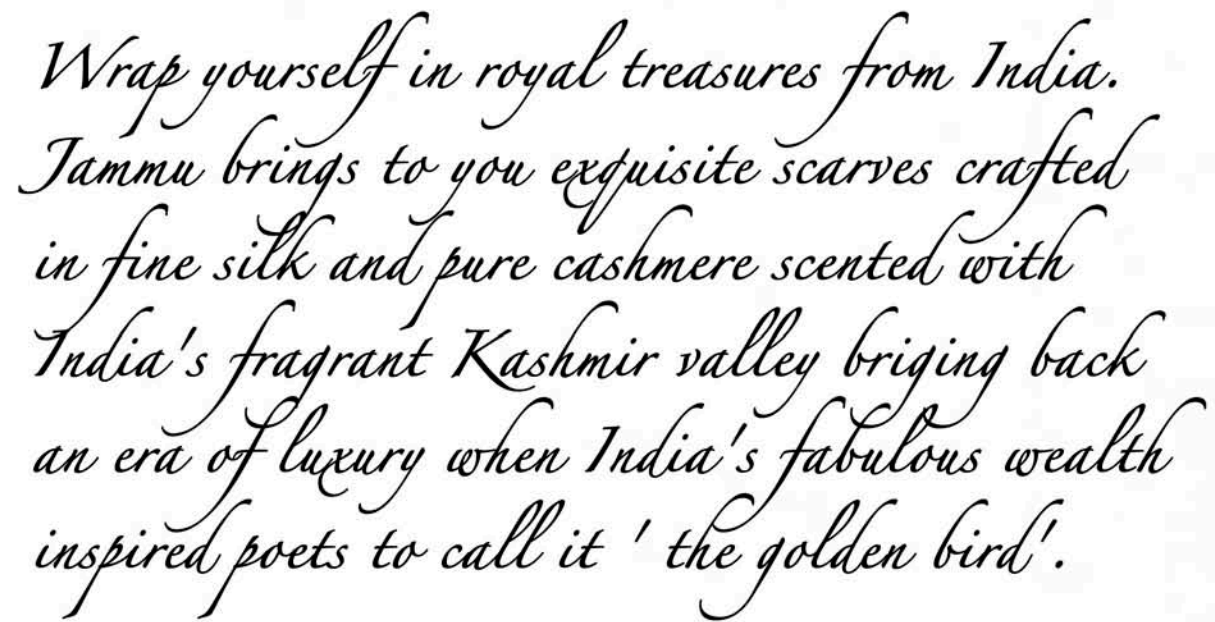 Wrap yourself in royal treasures from India.
Jammu brings to you exquisite scarves crafted
in fine silk and pure cashmere scented with
India's fragrant Kashmir valley briging back
an era of luxury when India's fabulous wealth
inspired poets to call it ' the golden bird'.